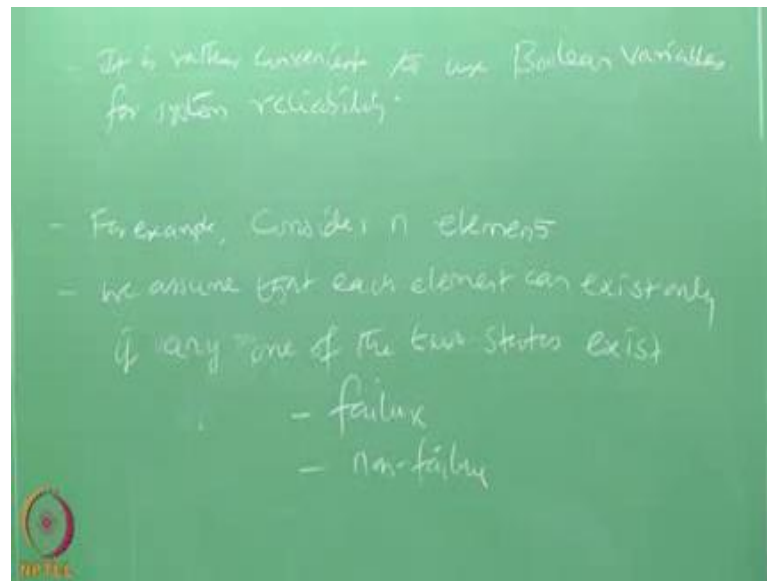 - It is rather convenient to use Boolean Variables
for system reliability.
- For example, Consider n element
- we assume that each element can exist only
if any one of the two states exist
- failure
- non-failure
NPTEL